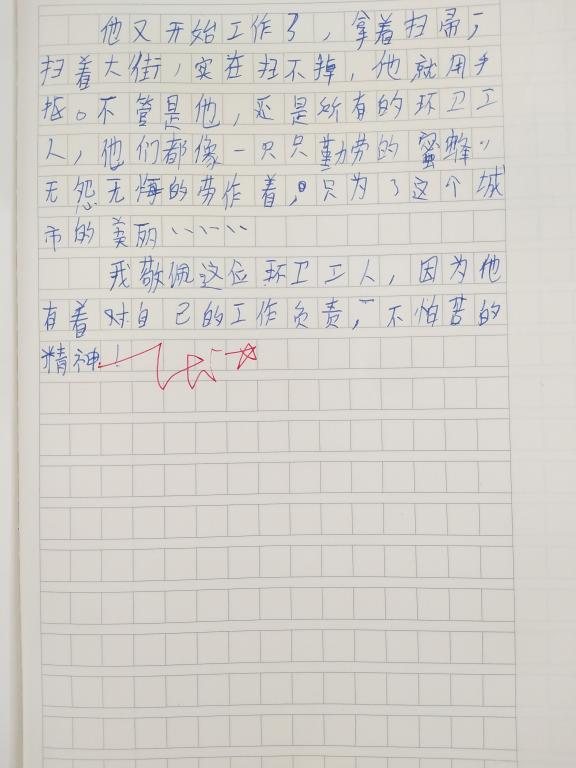 他又开始工作了，拿着扫帚，
扫着大街，实在扫不掉，他就用手
抠。不管是他，还是所有的环卫工
人，他们都像一只只勤劳的蜜蜂，
无怨无悔的劳作着，只为了这个城
市的美丽……
我敬佩这位环卫工人，因为他
有着对自己的工作负责，不怕苦的
精神！